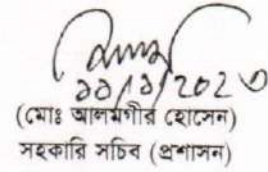 ১১/১/২০২৩
(মোঃ আলমগীর হোসেন)
সহকারি সচিব (প্রশাসন)